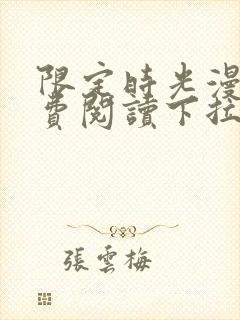 限定時光漫
費閱讀下拉
張雲梅